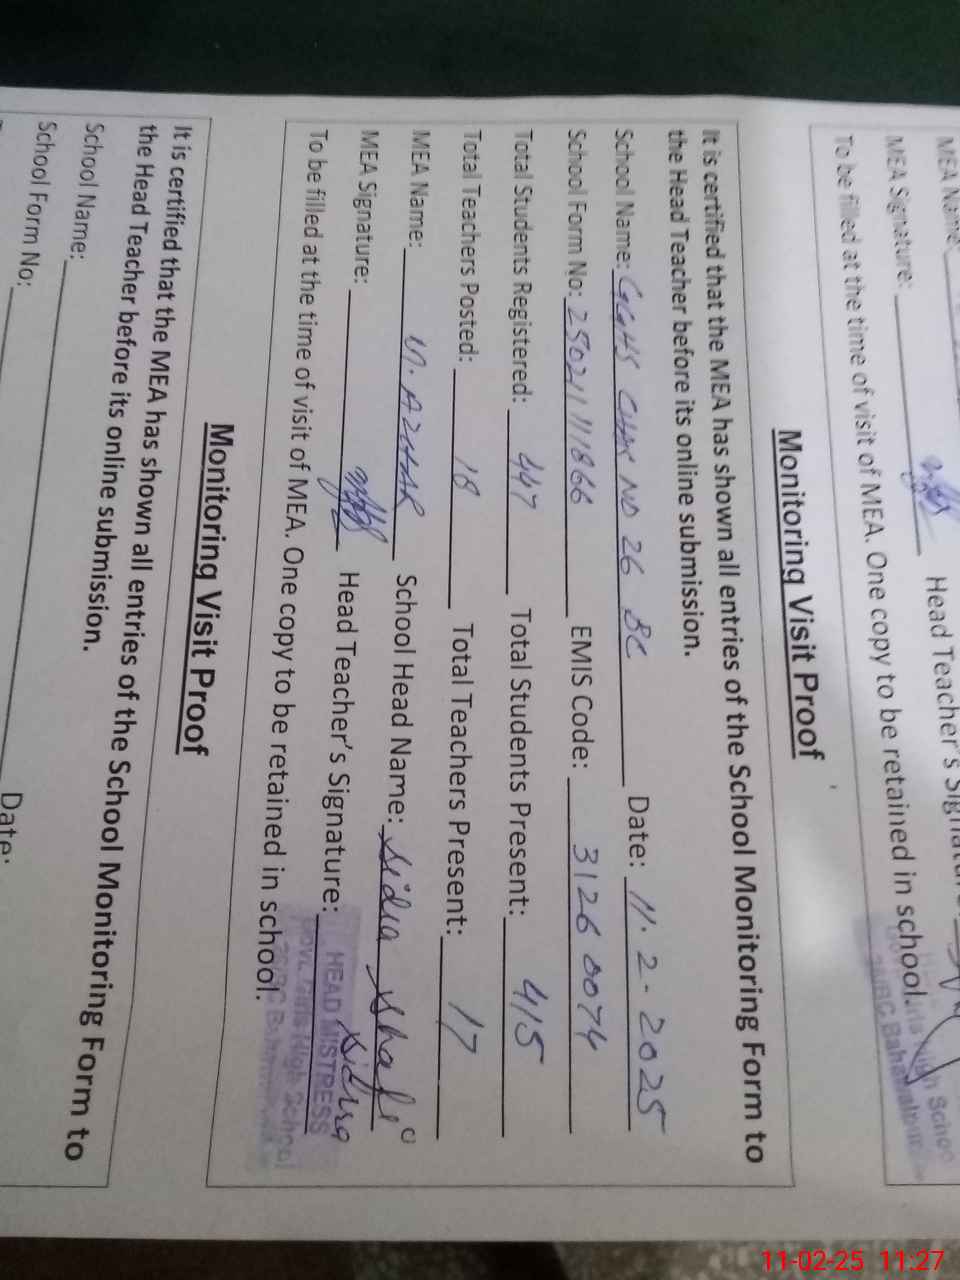 MEA Name
MEA Signature: Head Teacher's
To be filled at the time of visit of MEA. One copy to be retained in school.
Monitoring Visit Proof
It is certified that the MEA has shown all entries of the School Monitoring Form to
the Head Teacher before its online submission.
School Name: GGHS CHAK NO 26 BC Date: 11-2-2025
School Form No: 25021111866 EMIS Code: 31260074
Total Students Registered: 447 Total Students Present: 415
Total Teachers Posted: 18 Total Teachers Present: 17
MEA Name: M. AZHAR School Head Name: Sidra Shafi
MEA Signature: Head Teacher's Signature: Sidra
HEAD MISTRESS
Govt. Girls High School
26/BC Bahawalpur
To be filled at the time of visit of MEA. One copy to be retained in school.
Monitoring Visit Proof
It is certified that the MEA has shown all entries of the School Monitoring Form to
the Head Teacher before its online submission.
School Name: Date:
School Form No:
11-02-25 11:27